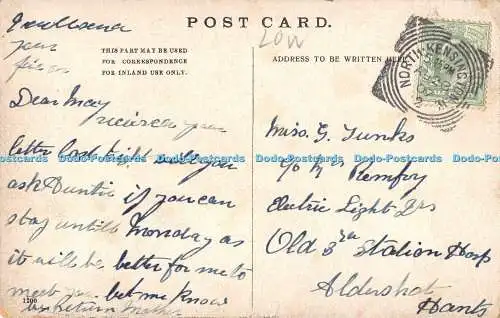 POST CARD.
THIS PART MAY BE USED
FOR CORRESPONDENCE
FOR INLAND USE ONLY.
LON
ADDRESS TO BE WRITTEN HERE
NORTH KENSINGTON. W
Dear May
received your
letter last night will you
ask Auntie if you can
stay until Monday as
it will be better for me to
meet you let me know
in return
1200
Miss. G. Tunks
c/o Mrs Pemfry
Electric Light Drs
Old Station Hosp
Aldershot
Hants
Postcards Aldo-Postcards Aldo-Postcards Aldo-Postcards Aldo-Postcards